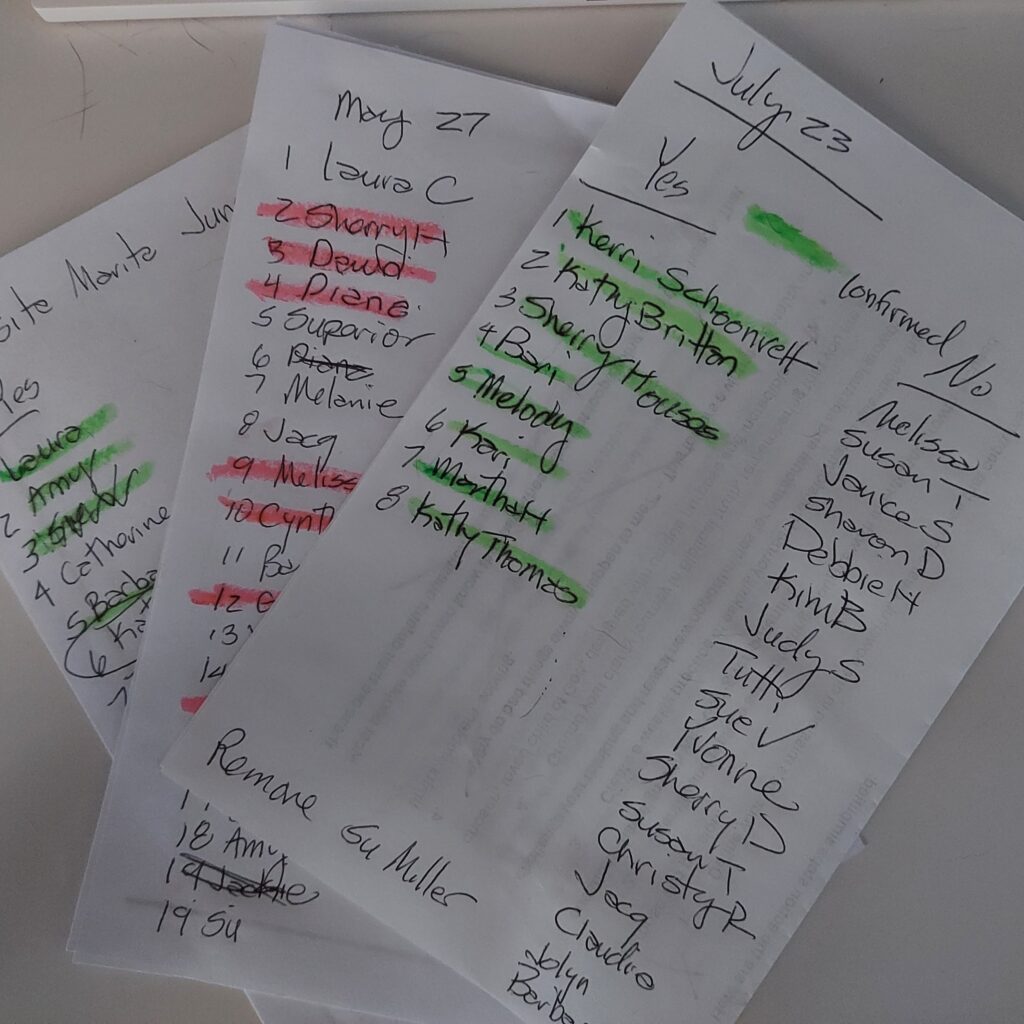 July 23
Yes
confirmed
No
1 Kerri Schoonvett
2 Kathy Britton
3 Sherry Houses
4 Bari
5 Melody
6 Kari
7 Martha H
8 Kathy Thomas
Melissa
Susan T
Janice S
Sharon D
Debbie H
Kim B
Judy S
Tutti
Sue V
Yvonne
Sherry D
Susan T
Christy R
Jacq
Claudia
Jolyn
Barba
Remove Su Miller
May 27
1 Laura C
2 Sherry H
3 Dawd
4 Diane
5 Superior
6 Diane
7 Melanie
8 Jacq
9 Meliss
10 Cynt
11 Ba
12 E
13
14
18 Amy
19 Jackie
19 Su
Site Marite Jun
Yes
Laura
2 Amy
3
4 Catharine
5 Barba
6 Ka
7